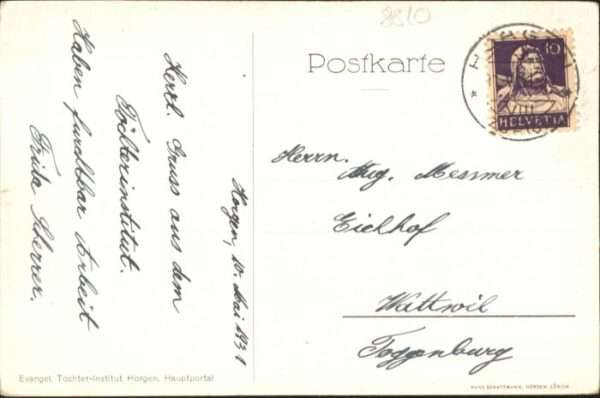 8810
Postkarte
10
HELVETIA
Horgen, 10. Mai 1931
Herzl. Gruss aus dem
Töchterinstitut.
Haben furchtbar Arbeit
Frida Scherrer.
Herrn.
Aug. Messmer
Eichhof
Wattwil
Toggenburg
Evangel. Töchter-Institut Horgen, Hauptportal